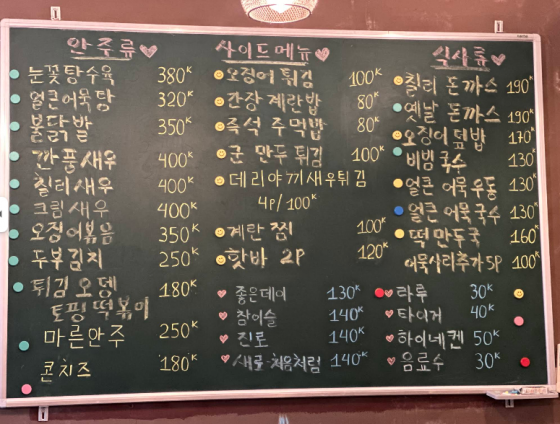 안주류
눈꽃탕수육 380K
얼큰어묵탕 320K
불닭발 350K
깐풍새우 400K
칠리새우 400K
크림새우 400K
오징어볶음 350K
두부김치 250K
튀김오뎅 180K
토핑떡볶이
마른안주 250K
콘치즈 180K
사이드메뉴
오징어튀김 100K
간장계란밥 80K
즉석주먹밥 80K
군만두튀김 100K
데리야끼새우튀김
4P/100K
계란찜 100K
핫바 2P 120K
좋은데이 130K
참이슬 140K
진로 140K
새로·처음처럼 140K
식사류
칠리 돈까스 190K
옛날 돈까스 190K
오징어덮밥 170K
비빔국수 130K
얼큰어묵우동 130K
얼큰어묵국수 130K
떡만두국 160K
어묵사리추가 5P 100K
라루 30K
타이거 40K
하이네켄 50K
음료수 30K